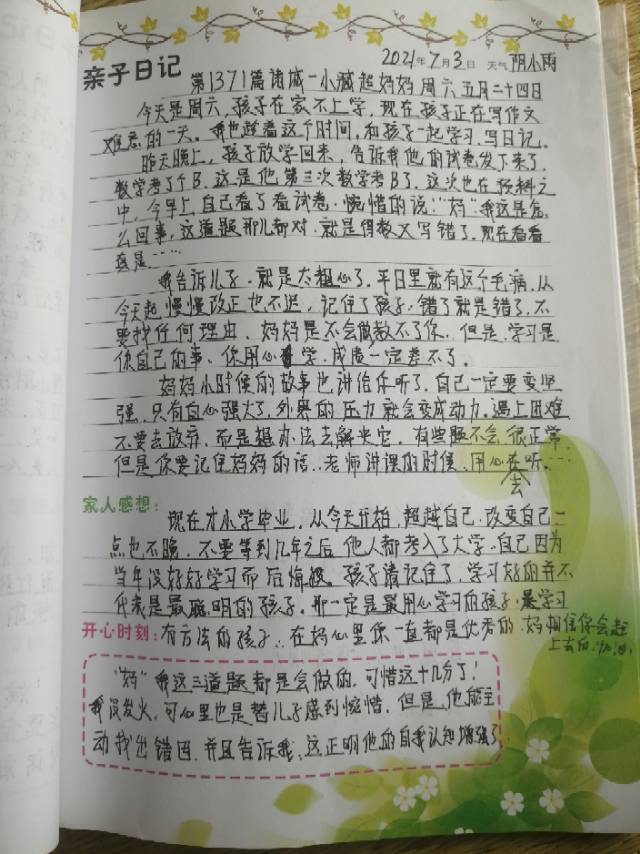 亲子日记 2021年7月3日 天气 阴小雨
第1371篇诸城一小臧超妈妈 周六五月二十四日
今天是周六,孩子在家不上学,现在孩子正在写作文
难忘的一天。我也趁着这个时间,和孩子一起学习,写日记。
昨天晚上,孩子放学回来,告诉我他的试卷发下来了,
数学考了个B,这是他第三次数学考B了,这次也在预料之
中,今早上自己看了看试卷,惋惜的说:“妈”我这是怎
么回事,这道题那儿都对,就是得数又写错了,现在看看
真是……
我告诉儿子,就是太粗心了,平日里就有这个毛病,从
今天起慢慢改正也不迟,记住了孩子,错了就是错了,不
要找任何理由,妈妈是不会做教不了你,但是,学习是
你自己的事,你用心学,成废一定差不了。
妈妈小时候的故事也讲给你听了,自己一定要变坚
强,只有自心强大了,外界的压力就会变成动力。遇上困难
不要去放弃,而是想办法去解决它,有些题不会很正常,
但是你要记住妈妈的话,老师讲课的时候,用心去听…
会
家人感想:
现在才小学毕业,从今天开始,超越自己,改变自己一
点也不晚,不要等到几年之后,他人都考入了大学,自己因为
当年没好好学习而后悔,孩子请记住了,学习好的并不
代表是最聪明的孩子,那一定是最用心学习的孩子,是学习
开心时刻:有方法的孩子,在妈心里你一直都是优秀的,妈相信你会赶
上去的,加油!
“妈”我这三道题都是会做的,可惜这十几分了!
我没发火,可心里也是替儿子感到惋惜,但是,他能主
动找出错因,并且告诉我,这正明他的自我认知增强了